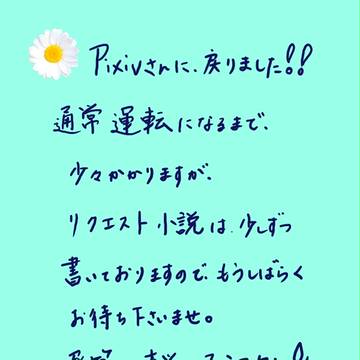 Pixivさんに、戻りました!!
通常運転になるまで、
少々かかりますが、
リクエスト小説は、少しずつ
書いておりますので、もうしばらく
お待ち下さいませ。